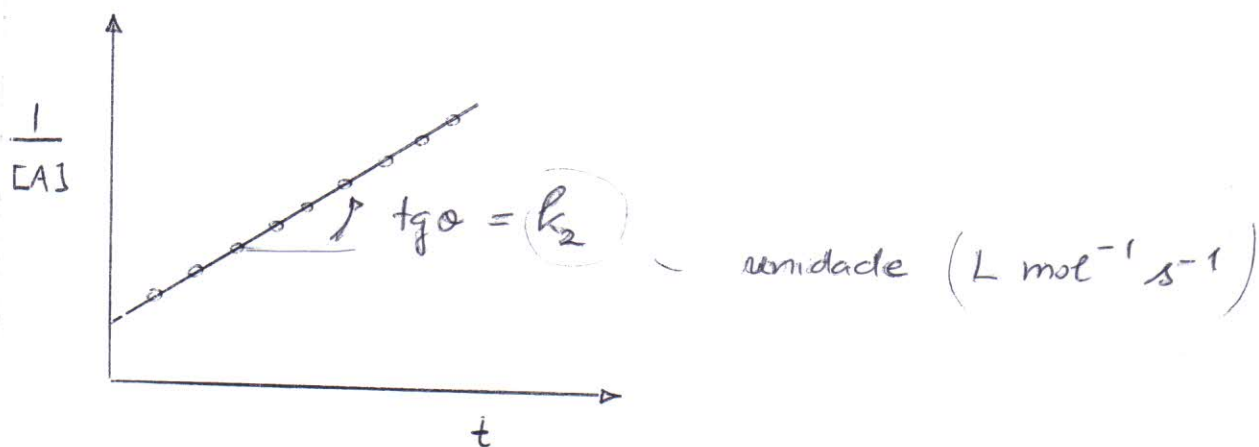 1
[A]
tgθ = k₂
unidade (L mol⁻¹ s⁻¹)
t